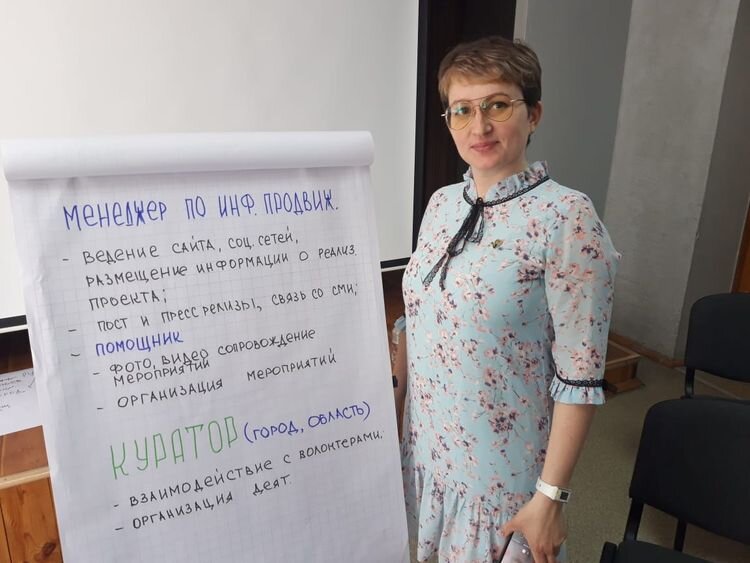 МЕНЕДЖЕР ПО ИНФ. ПРОДВИЖ.
- ВЕДЕНИЕ САЙТА, СОЦ. СЕТЕЙ,
РАЗМЕЩЕНИЕ ИНФОРМАЦИИ О РЕАЛИЗ.
ПРОЕКТА;
- ПОСТ И ПРЕСС РЕЛИЗЫ, СВЯЗЬ СО СМИ;
- ПОМОЩНИК
- ФОТО, ВИДЕО СОПРОВОЖДЕНИЕ
МЕРОПРИЯТИЙ
- ОРГАНИЗАЦИЯ МЕРОПРИЯТИЙ
КУРАТОР (ГОРОД, ОБЛАСТЬ)
- ВЗАИМОДЕЙСТВИЕ С ВОЛОНТЕРАМИ;
- ОРГАНИЗАЦИЯ ДЕЯТ.